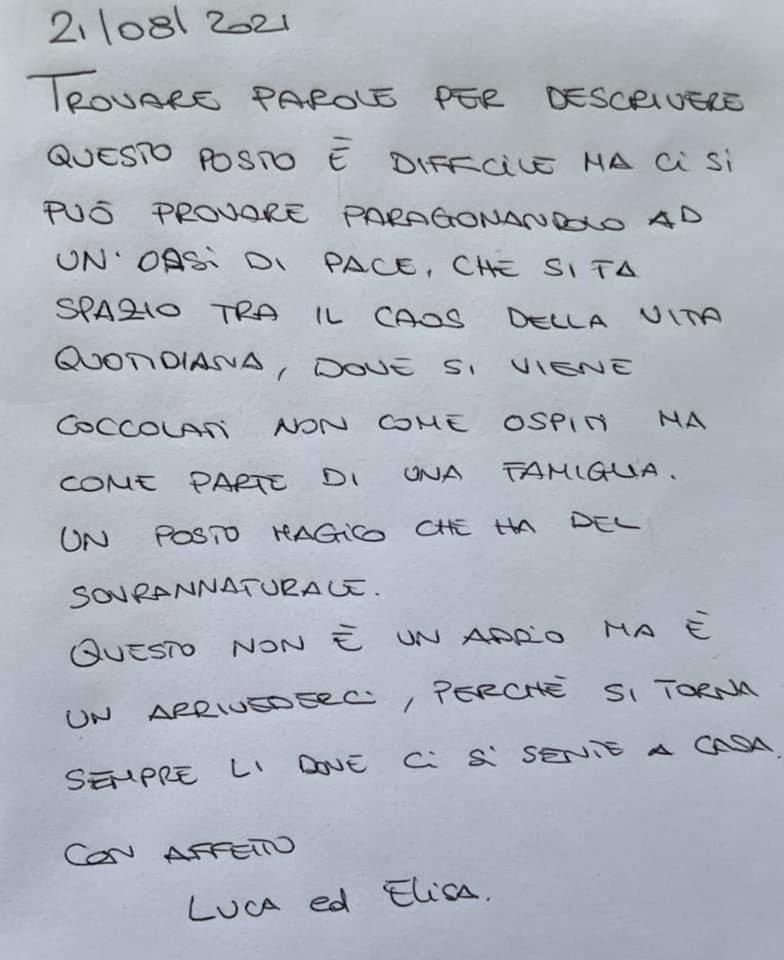 21/08/2021
TROVARE PAROLE PER DESCRIVERE
QUESTO POSTO È DIFFICILE MA Ci Si
PUÒ PROVARE PARAGONANDOLO AD
UN' OASi DI PACE, CHE SI FA
SPAZIO TRA IL CAOS DELLA VITA
QUOTIDIANA, DOVE SI VIENE
COCCOLATI NON COME OSPITI MA
COME PARTE DI UNA FAMIGLIA.
UN POSTO MAGICO CHE HA DEL
SOVRANNATURALE.
QUESTO NON È UN ADDIO MA È
UN ARRIVEDERCi, PERCHÈ SI TORNA
SEMPRE LI DOVE Ci Si SENTE A CASA.
CON AFFETTO
LUCA ed Elisa.